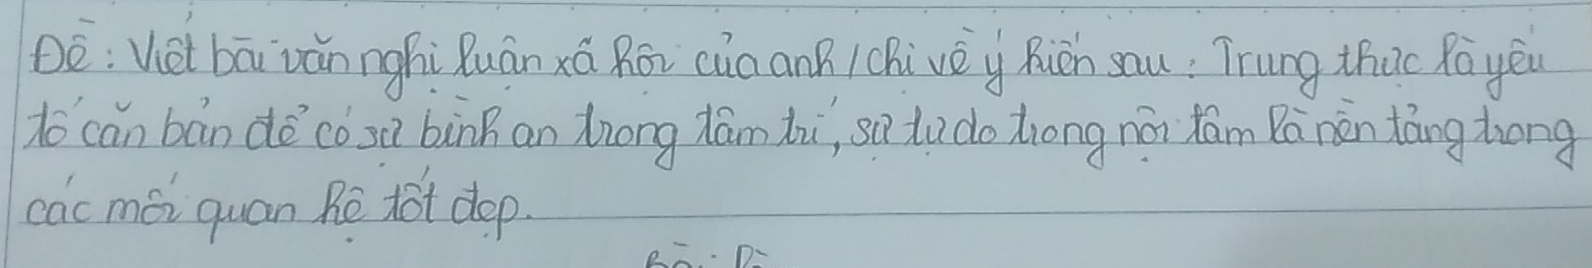 Đề: Viết bài văn nghị luận xã hội của anh/chị về ý kiến sau: Trung thực là yếu
tố căn bản để có sự bình an trong tâm trí, sự tự do trong nội tâm là nền tảng trong
các mối quan hệ tốt đẹp.